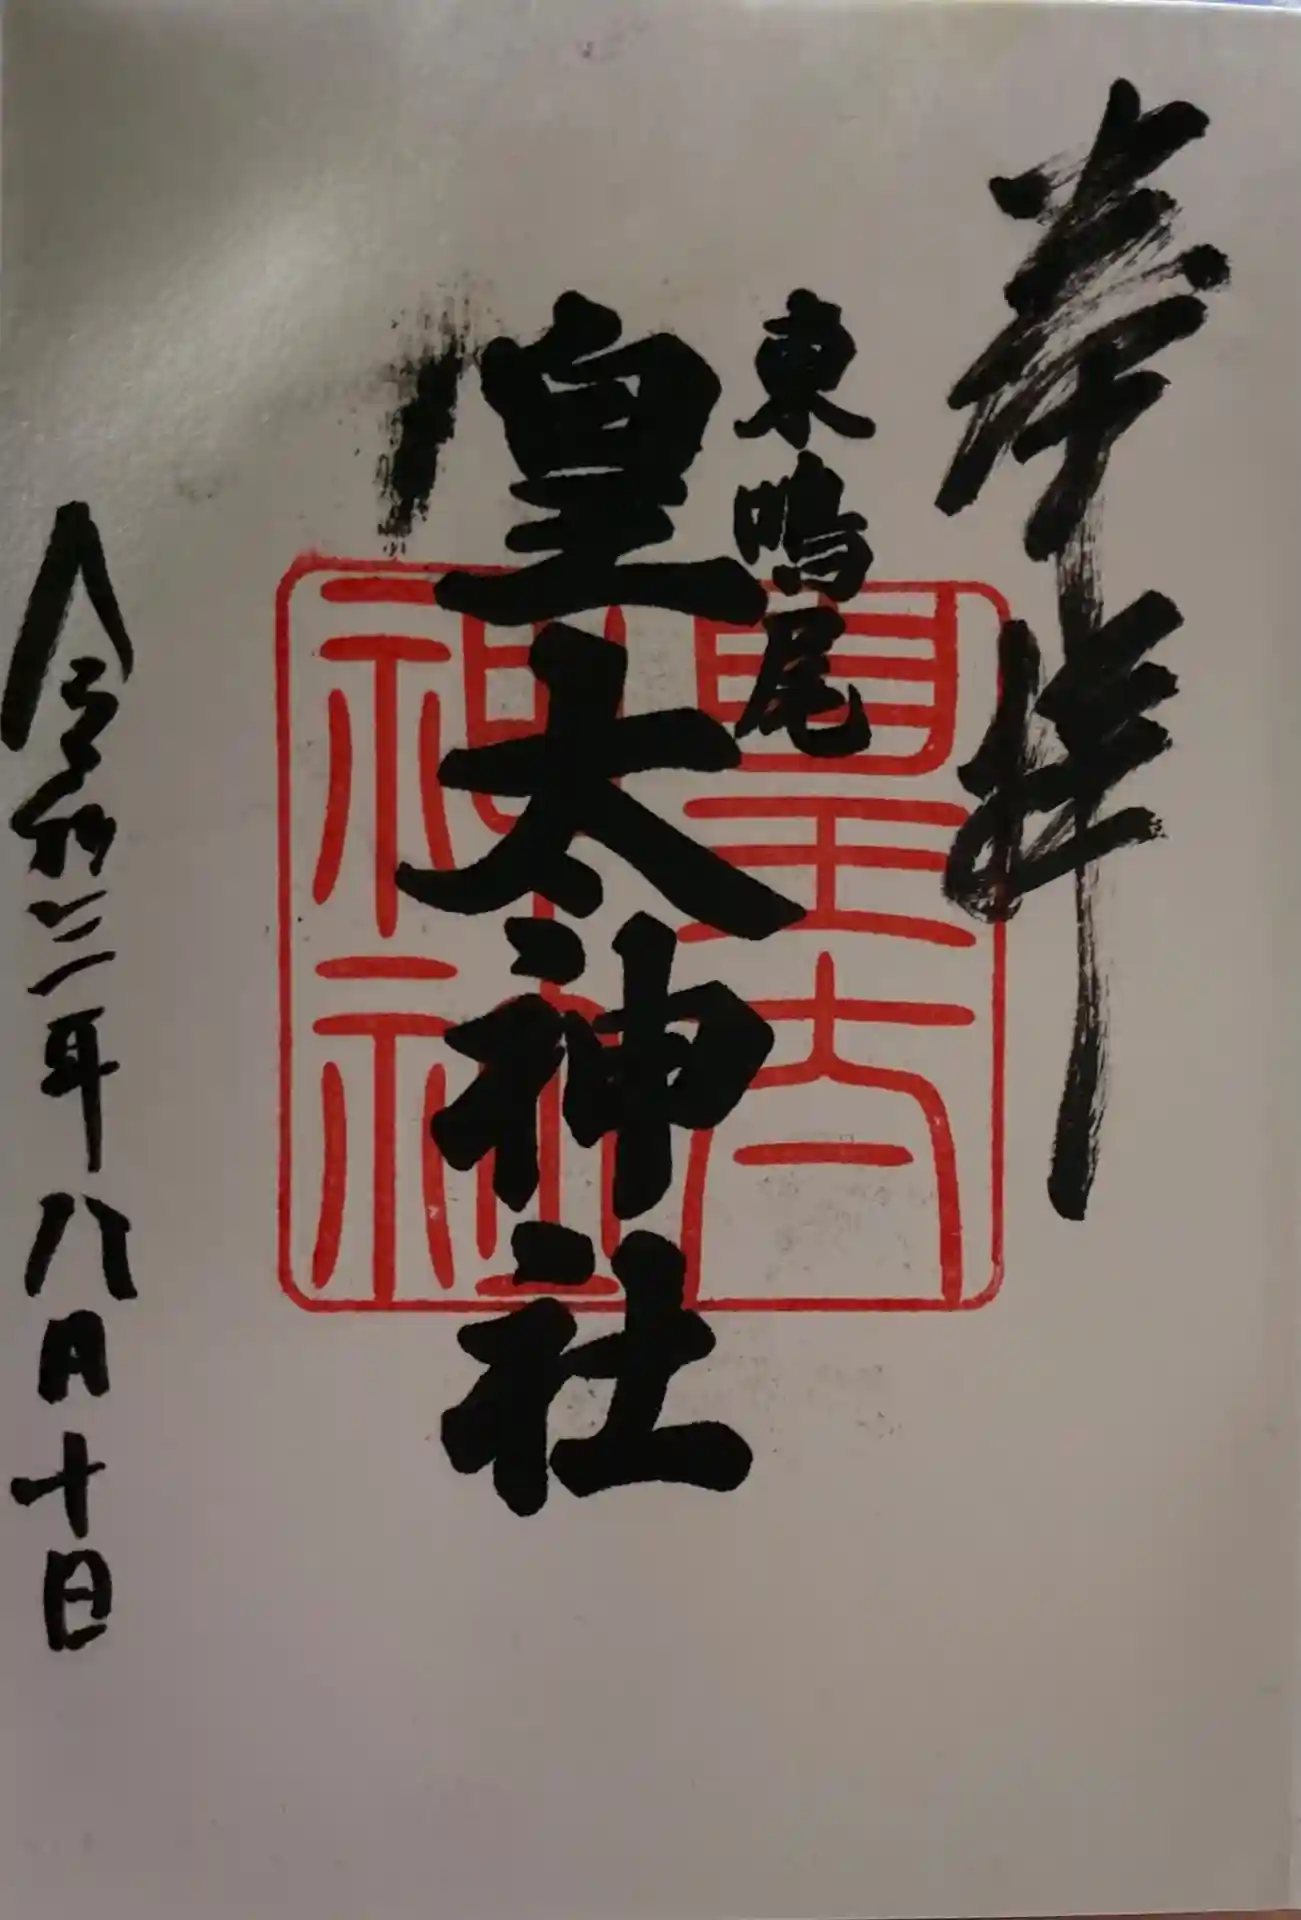 奉拝
東鳴尾
皇太神社
皇太
神社
令和三年八月十日